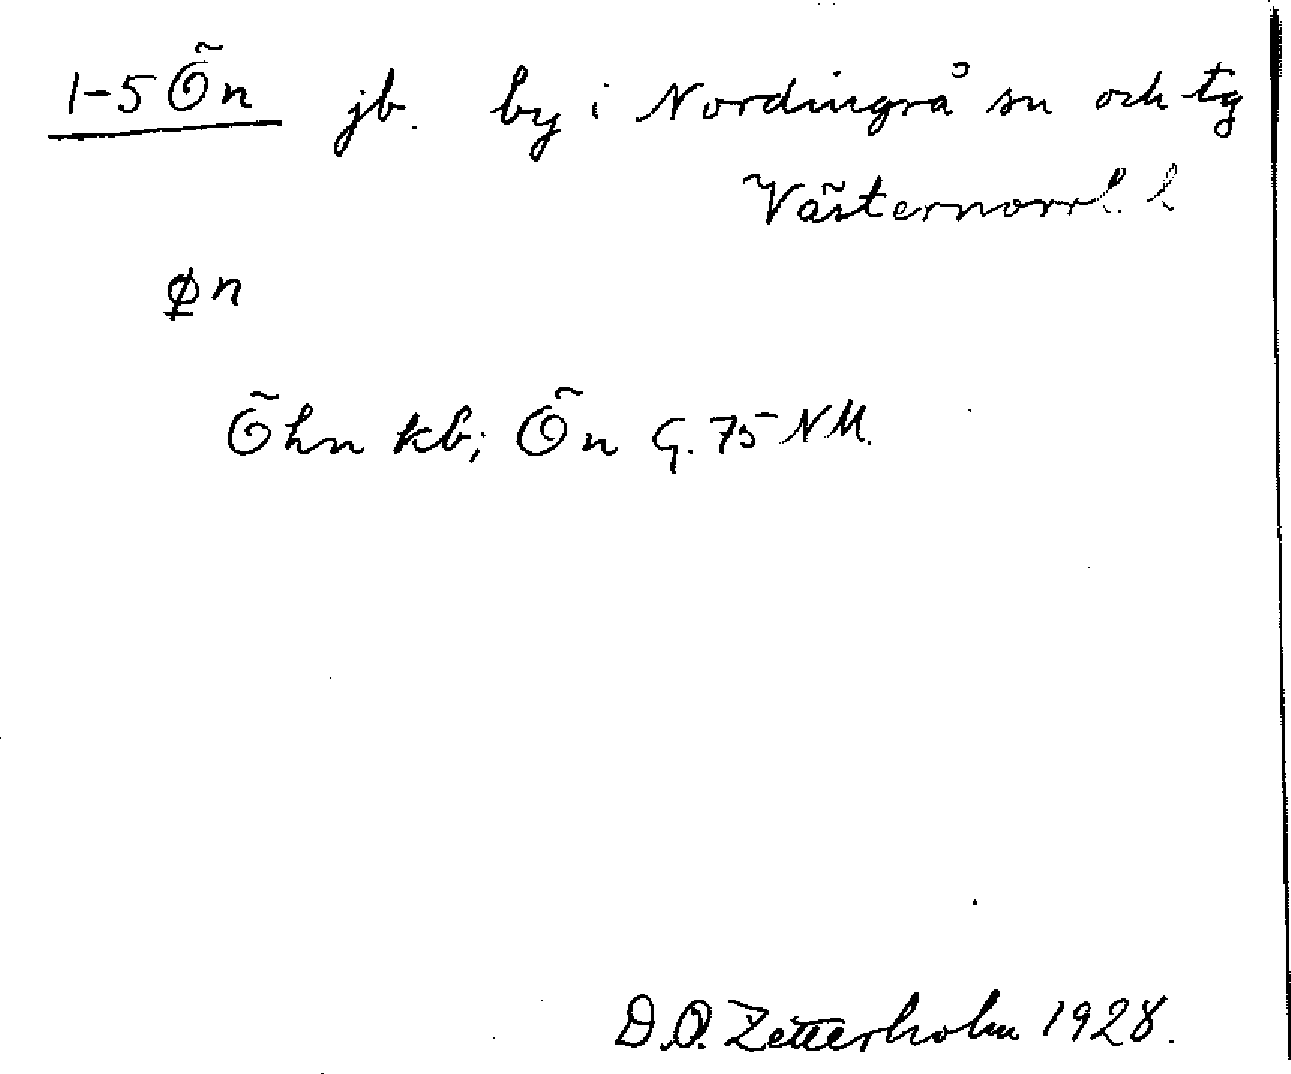 1-5 Ön jb. by i Nordingrå sn och tg
Västernorrl. l
ø̱n
Öhn kb; Ön G. 75 NM.
D.O. Zetterholm 1928.